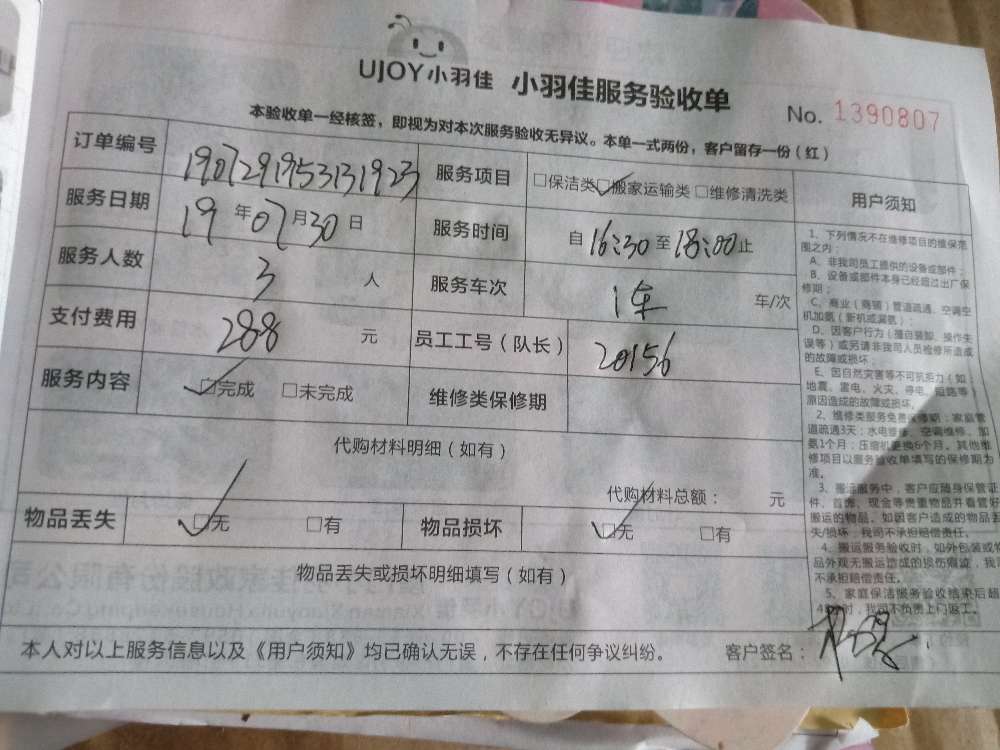 UJOY小羽佳 小羽佳服务验收单
No. 1390807
本验收单一经核签，即视为对本次服务验收无异议。本单一式两份，客户留存一份（红）
订单编号 190729195313192​3 服务项目 □保洁类 ☑搬家运输类 □维修清洗类 用户须知
服务日期 19年07月30日 服务时间 自16:30至18:00止
服务人数 3人 服务车次 1车 车/次
支付费用 288元 员工工号（队长） 20156
服务内容 ☑完成 □未完成 维修类保修期
代购材料明细（如有）
代购材料总额： 元
物品丢失 ☑无 □有 物品损坏 ☑无 □有
物品丢失或损坏明细填写（如有）
本人对以上服务信息以及《用户须知》均已确认无误，不存在任何争议纠纷。 客户签名：
1、下列情况不在维修项目的维保范
围之内：
A、非我司员工提供的设备或部件；
B、设备或部件本身已经超过出厂保
修期；
C、商业（商铺）管道疏通、空调空
机加氨（新机或漏氨）
D、因客户行为（擅自装卸、操作失
误等）或另请非我司人员检修所造成
的故障或损坏；
E、因自然灾害等不可抗拒力（如：
地震、雷电、火灾、停电、短路等）
原因造成的故障或损坏。
2、维修类服务免费保修期：家庭管
道疏通3天；水电维修、空调维修、加
氨1个月；压缩机更换6个月。其他维
修项目以服务验收单填写的保修期为
准。
3、搬运服务中，客户应随身保管证
件、首饰、现金等贵重物品并看管好
搬运的物品。如因客户造成的物品丢
失/损坏，我司不承担赔偿责任。
4、搬运服务验收时，如外包装或物
品外观无搬运造成的损伤痕迹，我司
不承担赔偿责任。
5、家庭保洁服务验收结束后超
时，我司不负责上门返工。